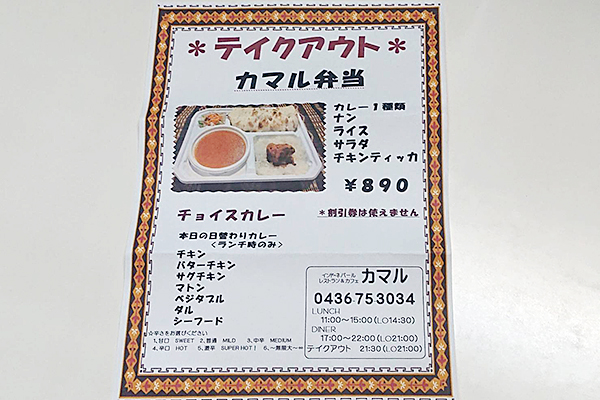 ＊テイクアウト＊
カマル弁当
カレー1種類
ナン
ライス
サラダ
チキンティッカ
￥890
チョイスカレー
＊割引券は使えません
本日の日替わりカレー
<ランチ時のみ>
チキン
バターチキン
サグチキン
マトン
ベジタブル
ダル
シーフード
☆辛さをお選びください
1,甘口 SWEET 2,普通 MILD 3,中辛 MEDIUM
4,辛口 HOT 5,激辛 SUPER HOT! 6,~無限大~∞
インド・ネパール
レストラン&カフェ カマル
0436 75 3034
LUNCH
11:00～15:00(LO14:30)
DINER
17:00～22:00(LO21:00)
テイクアウト 21:30(LO21:00)